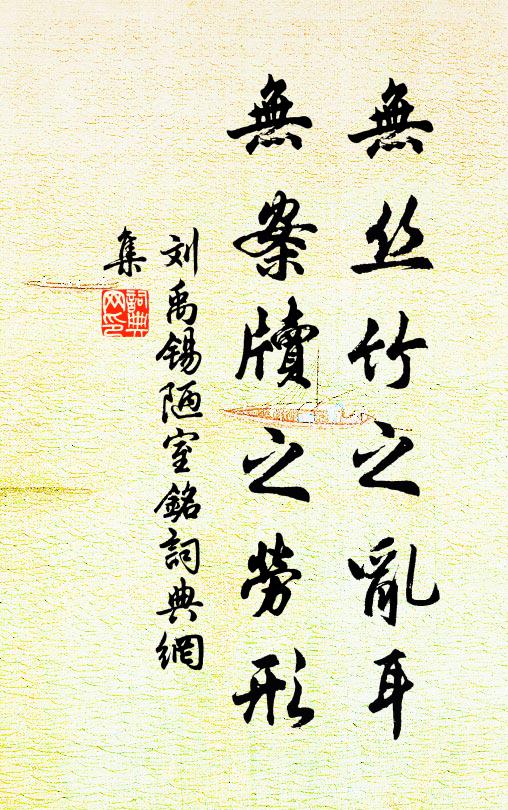 無丝竹之亂耳
無案牘之勞形
刘禹锡陋室銘詞典網
集
詞典网印